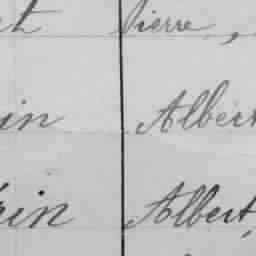 et Pierre,
in Albert
rin Albert,